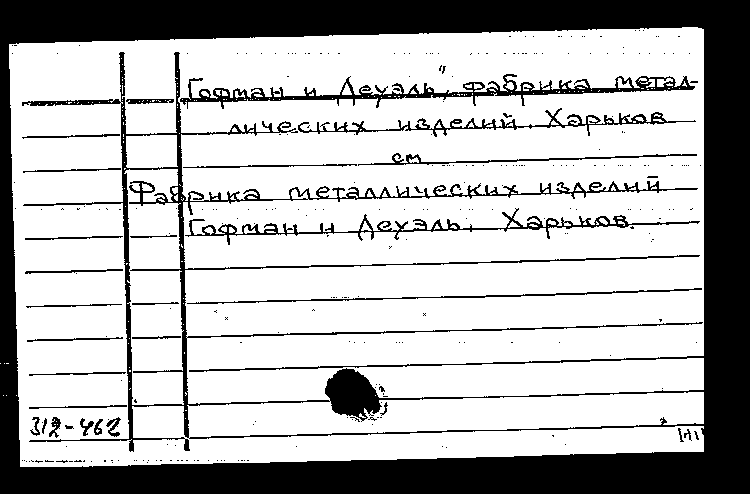 Гофман и Деуэль", фабрика метал-
лических изделий. Харьков
см
Фабрика металлических изделий
Гофман и Деуэль, Харьков.
312-462